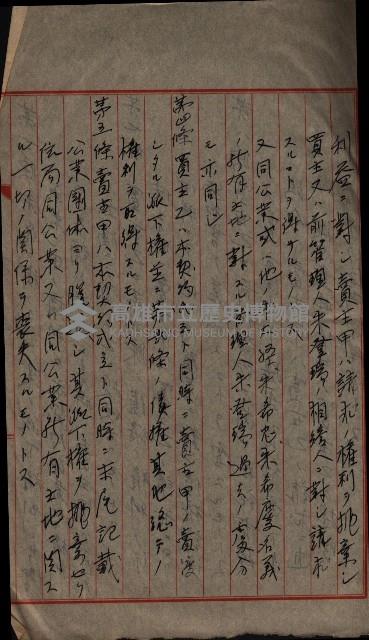 利益ニ對シ賣主甲ハ請求ノ權利ヲ抛棄シ
買主又ハ前管理人朱 相續人ニ對シ請求
スルコトヲ得サルモノトス
又同公業或ハ他ノ 朱希忠朱希慶名義
ノ所有土地ニ對スル管理人朱 過去ノ處分
モ亦同シ
第四條買主乙ハ本契約 ト同時ニ賣主甲ノ賣渡
シタル派下權主ニ 債權其他總テノ
權利ヲ取得スルモノトス
第五條賣主甲ハ本契約成立ト同時ニ末尾記載
公業團体ヨリ脱 シ其派下權ヲ抛棄セ
ル 同公業又ハ同公業所有土地ニ関ス
ル一切ノ関係ヲ喪失スルモノトス
高雄市立歷史博物館
KAOHSIUNG MUSEUM OF HISTORY